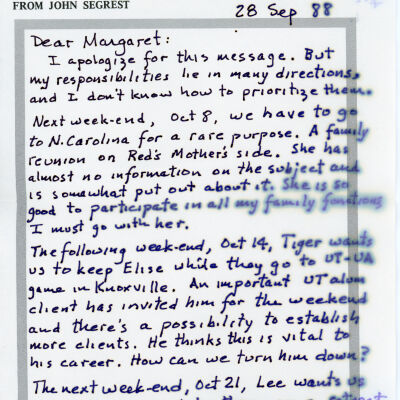 FROM JOHN SEGREST
28 Sep 88
Dear Margaret:
I apologize for this message. But
my responsibilities lie in many directions,
and I don't know how to prioritize them.
Next week-end, Oct 8, we have to go
to N. Carolina for a rare purpose. A family
reunion on Red's Mother's side. She has
almost no information on the subject and
is somewhat put out about it. She is so
good to participate in all my family functions
I must go with her.
The following week-end, Oct 14, Tiger wants
us to keep Elise while they go to UT-UA
game in Knoxville. An important UT alum
client has invited him for the weekend
and there's a possibility to establish
more clients. He thinks this is vital to
his career. How can we turn him down?
The next week-end, Oct 21, Lee wants us